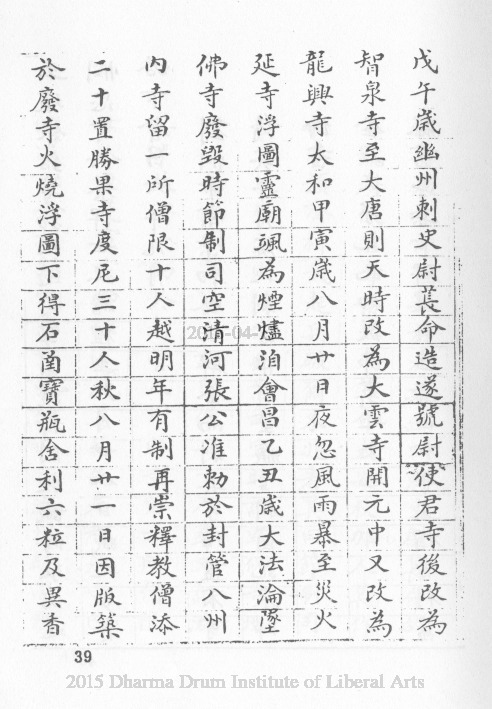 戊午歲幽州刺史尉萇命造遂號尉使君寺後改為
智泉寺至大唐則天時改為大雲寺開元中又改為
龍興寺太和甲寅歲八月廿日夜忽風雨暴至災火
延寺浮圖靈廟颯為煙燼洎會昌乙丑歲大法淪墜
佛寺廢毀時節制司空清河張公准勅於封管八州
內寺留一所僧限十人越明年有制再崇釋教僧添
二十置勝果寺度尼三十人秋八月廿一日因版築
於廢寺火燒浮圖下得石函寶瓶舍利六粒及異香
39
2015 Dharma Drum Institute of Liberal Arts